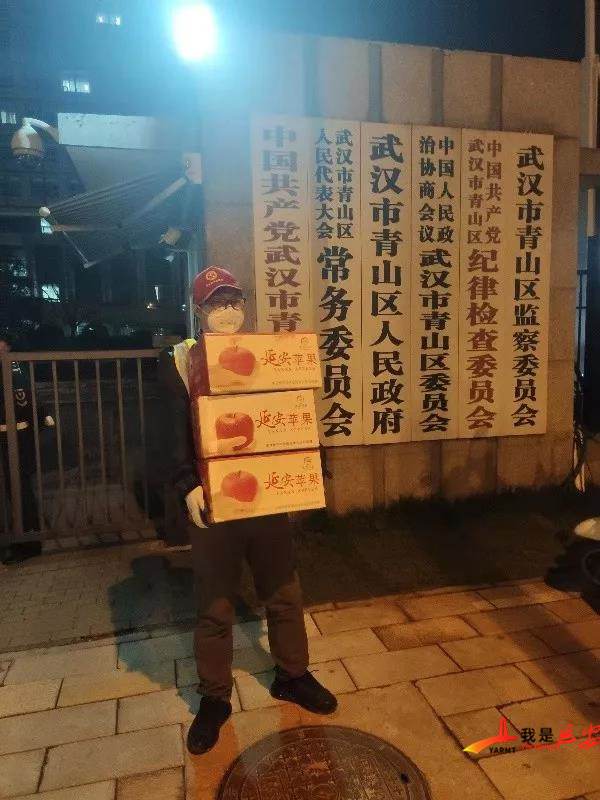 中国共产党武汉市青
武汉市青山区
人民代表大会
常务委员会
武汉市青山区人民政府
中国人民政
治协商会议
武汉市青山区委员会
中国共产党
武汉市青山区
纪律检查委员会
武汉市青山区监察委员会
延安苹果
延安苹果
延安苹果
我是延安
YARMT